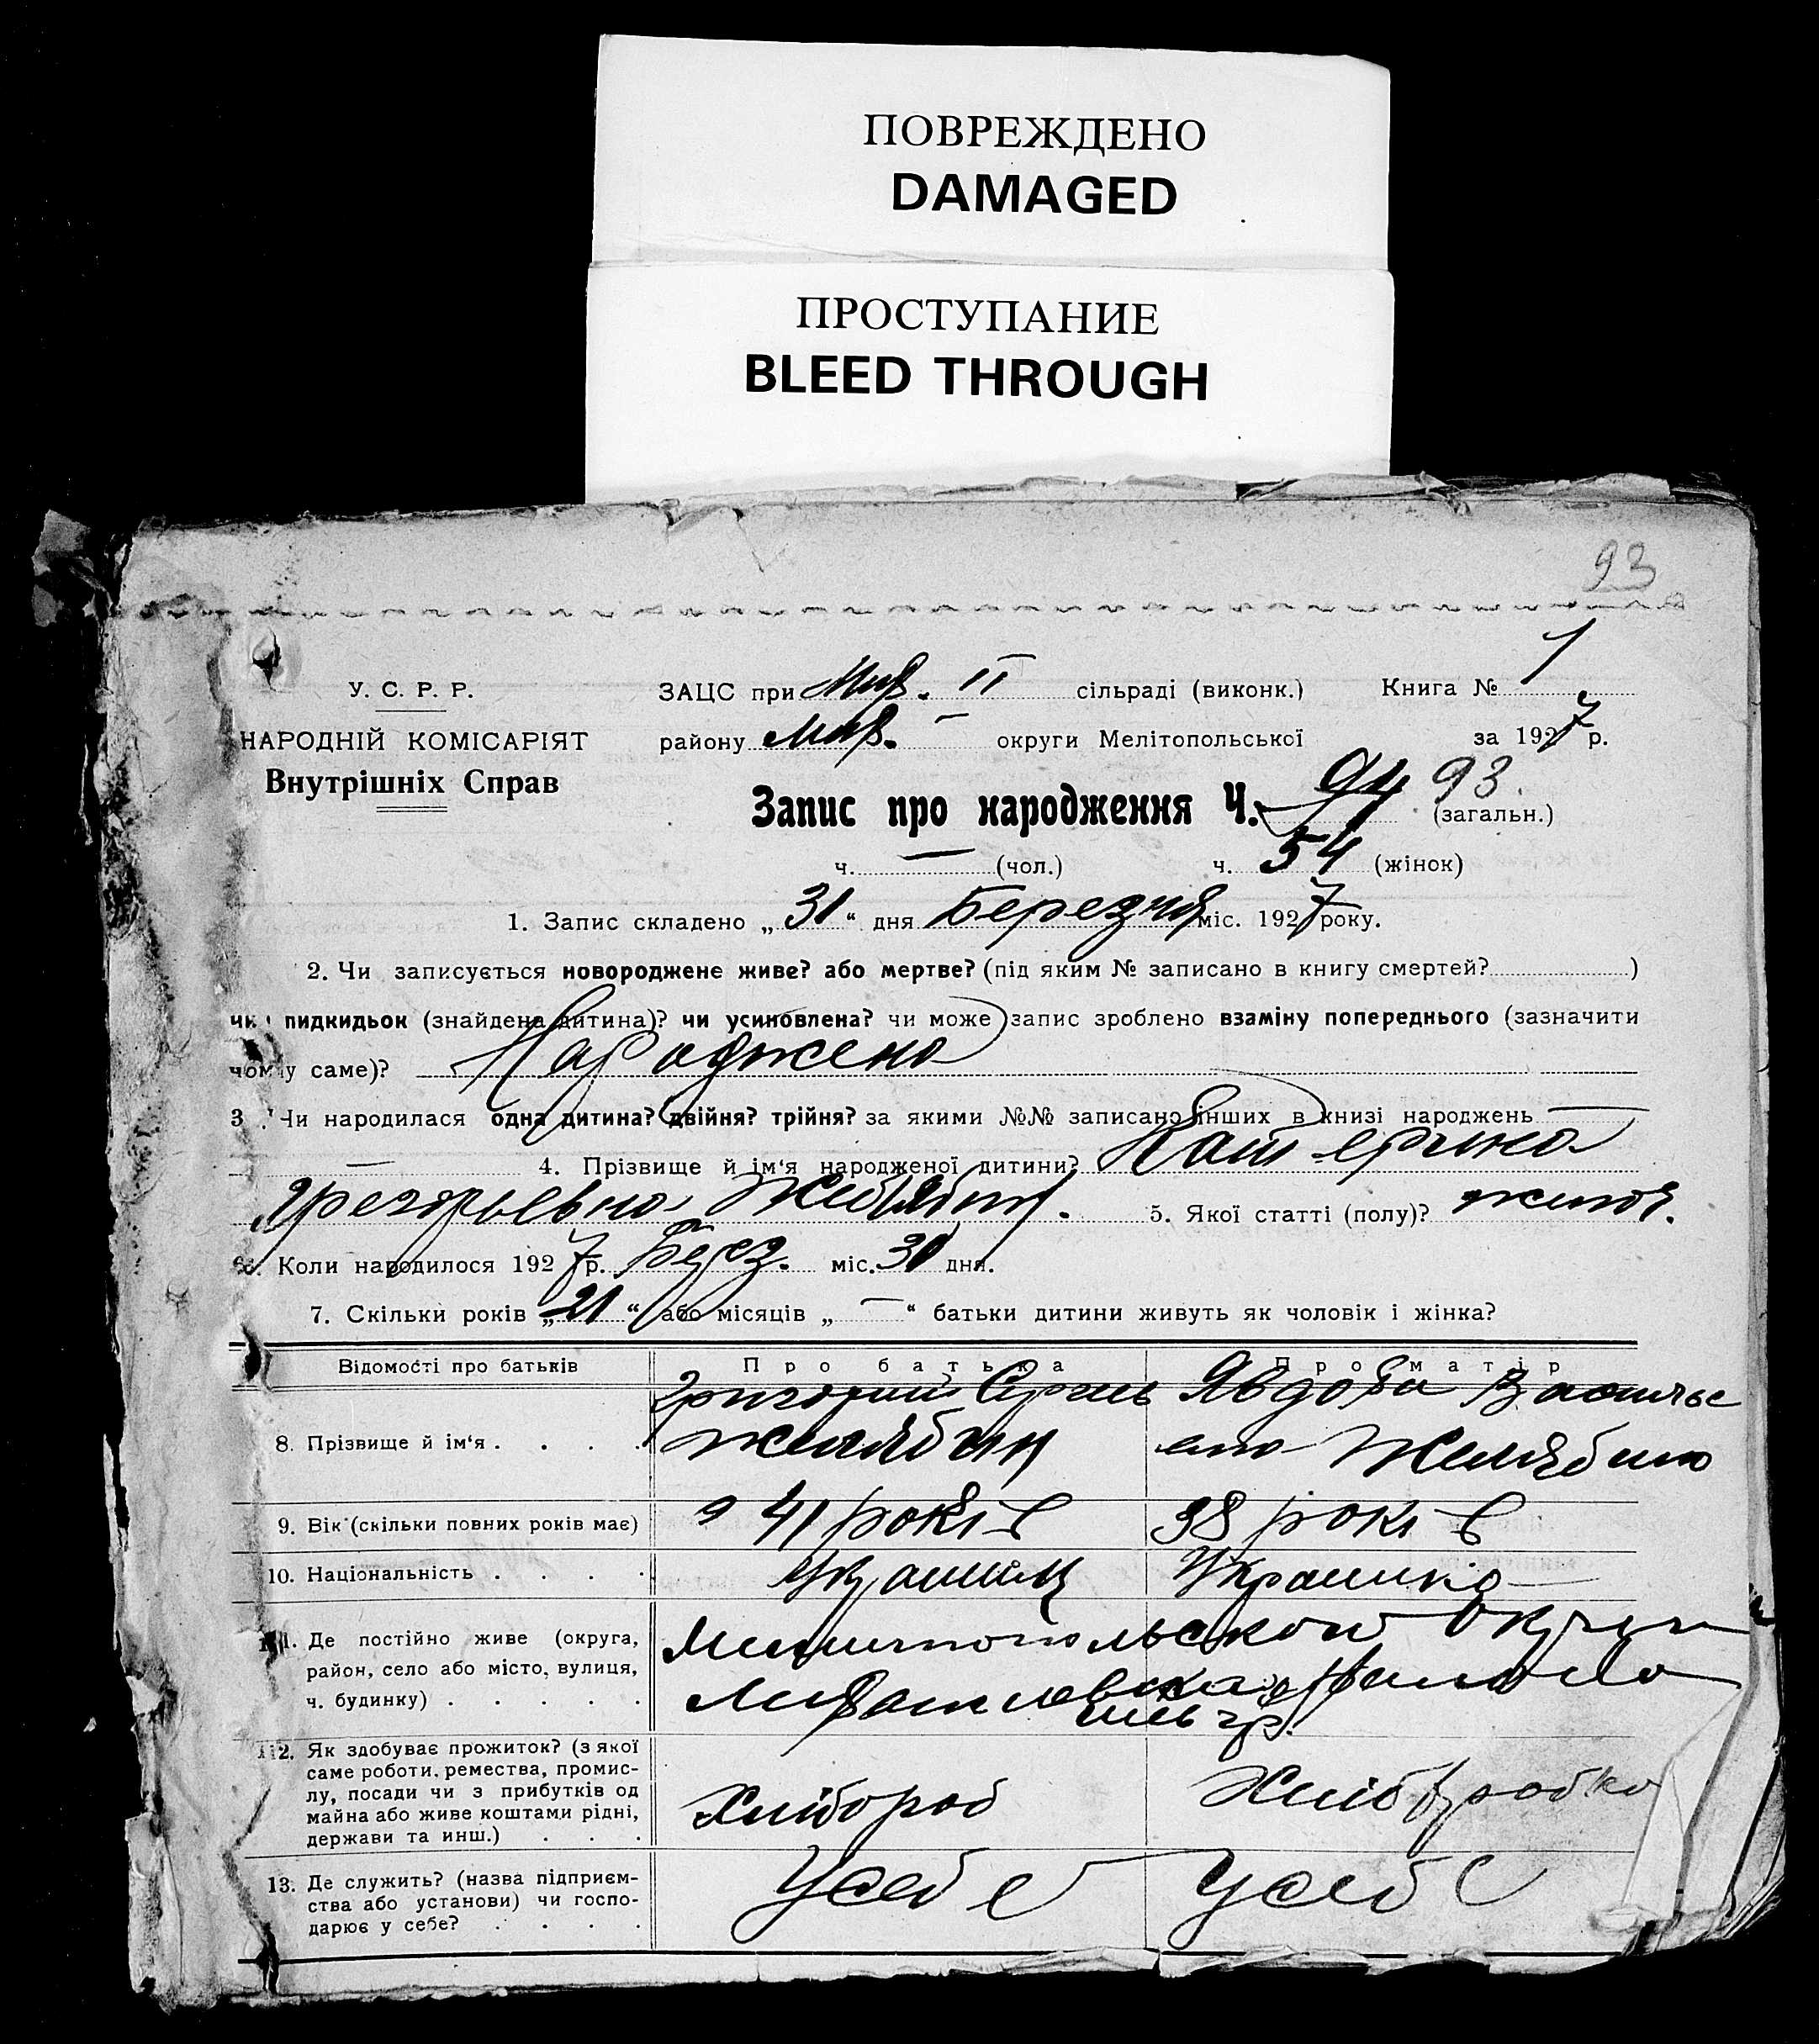 ПОВРЕЖДЕНО
DAMAGED
ПРОСТУПАНИЕ
BLEED THROUGH
93
У. С. Р. Р.
НАРОДНІЙ КОМІСАРІЯТ
Внутрішніх Справ
ЗАЦС при II сільраді (виконк.) Книга № 1
району округи Мелітопольської за 1927 р.
Запис про народження Ч. 94 93. (загальн.)
ч. — (чол.) ч. 54 (жінок)
1. Запис складено „ 31 “ дня Березня міс. 1927 року.
2. Чи записується новороджене живе? або мертве? (під яким № записано в книгу смертей? )
чи пидкидьок (знайдена дитина)? чи усиновлена? чи може запис зроблено взаміну попереднього (зазначити
чому саме)? Народжено
3. Чи народилася одна дитина? двійня? трійня? за якими №№ записано інших в книзі народжень —
— 4. Прізвище й ім‘я народженої дитини? Катерина
5. Якої статті (полу)?
6. Коли народилося 1927 р. Берез. міс. 30 дня.
7. Скільки років „ 21 “ або місяців „ — “ батьки дитини живуть як чоловік і жінка?
Відомості про батьків Про батька Про матір
8. Прізвище й ім‘я . . . . Григорий Желябин Явдоха
9. Вік (скільки повних років має) 41 років 38 років
10. Національність . . . . Українка
11. Де постійно живе (округа,
район, село або місто, вулиця,
ч. будинку) . . . . .
12. Як здобуває прожиток? (з якої
саме роботи, ремества, промис-
лу, посади чи з прибутків од
майна або живе коштами рідні,
держави та инш.) . . .
Хлібороб Хліборобка
13. Де служить? (назва підприєм-
ства або установи) чи госпо-
дарює у себе? . . . .
У себе У себе